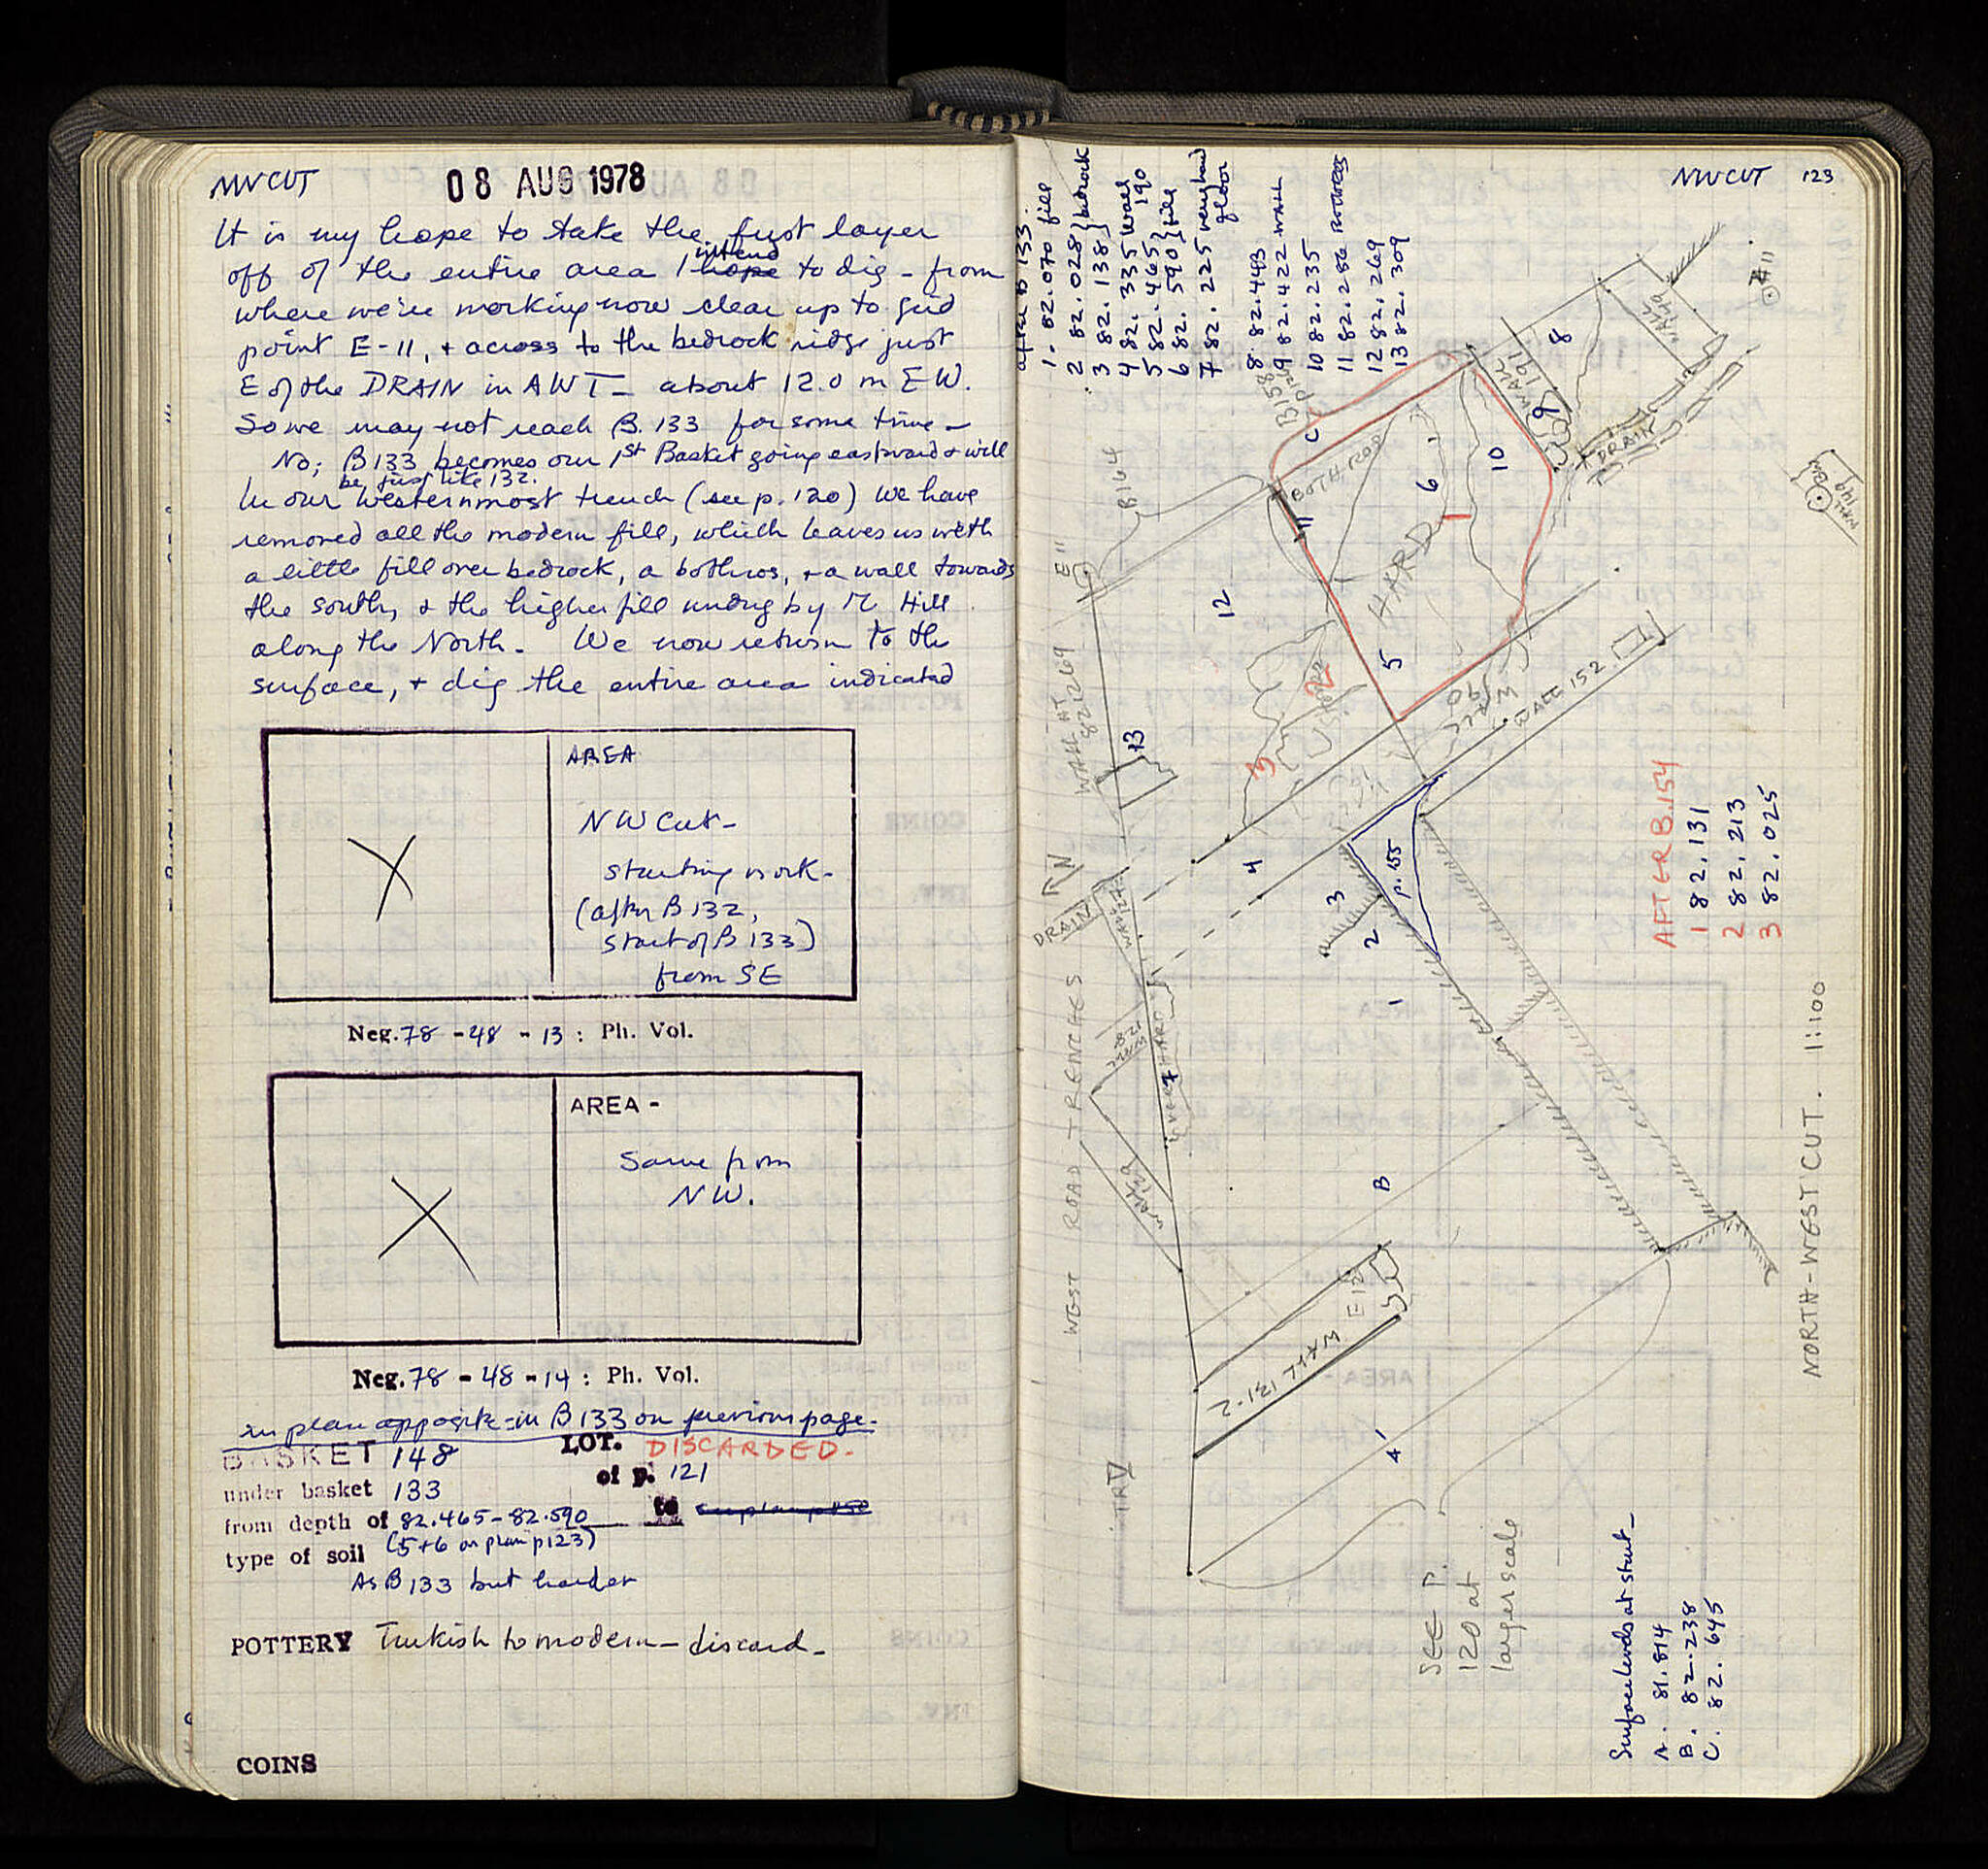 NW CUT
08 AUG 1978
It is my hope to take the first layer
off of the entire area I hope intend to dig - from
where we're working now clear up to grid
point E-11, + across to the bedrock ridge just
E of the DRAIN in AWT - about 12.0 m EW.
So we may not reach B. 133 for some time -
No; B133 becomes our 1st Basket going eastward + will
be just like 132.
In our westernmost trench (see p. 120) we have
removed all the modern fill, which leaves us with
a little fill over bedrock, a bothros, + a wall towards
the south, + the higher fill undug by M. Hill
along the North. We now return to the
surface, + dig the entire area indicated
AREA
NW Cut -
starting work -
(after B 132,
start of B 133)
from SE
Neg. 78 - 48 - 13 : Ph. Vol.
AREA -
Same from
NW.
Neg. 78 - 48 - 14 : Ph. Vol.
in plan opposite - in B 133 on previous page.
BASKET 148 LOT. DISCARDED.
under basket 133 of p. 121
from depth of 82.465 - 82.590 to
(5+6 on plan p 123)
type of soil
As B 133 but harder
POTTERY Turkish to modern - discard -
COINS
NW CUT 123
after B 133.
1 - 82.070 fill
2 82.028 } bedrock
3 82.138
4 82.335 Wall 190
5 82.465 } fill
6 82.590
7 82.225 very hard floor
8. 82.493
9 82.422 WALL
10 82.235
11 82.286 BOTHROS
12 82.269
13 82.309
B158
C
BOTHROS
B164
E11
11
12
HARD
6
10
5
8
9
WALL 191
WALL 149
DRAIN
E11
WALL 149
WALL AT 82.269
13
2
3
WALL 190
WALL 152
4
3
2
1
p. 155
N
DRAIN
WEST ROAD TRENCHES
VERY HARD
7
B
E12
WALL 131-2
A
TR V
AFTER B.154
1 82.131
2 82.213
3 82.025
NORTH-WEST CUT. 1:100
SEE P.
120 at
larger scale
Surface levels at start -
A. 81.814
B. 82.238
C. 82.645